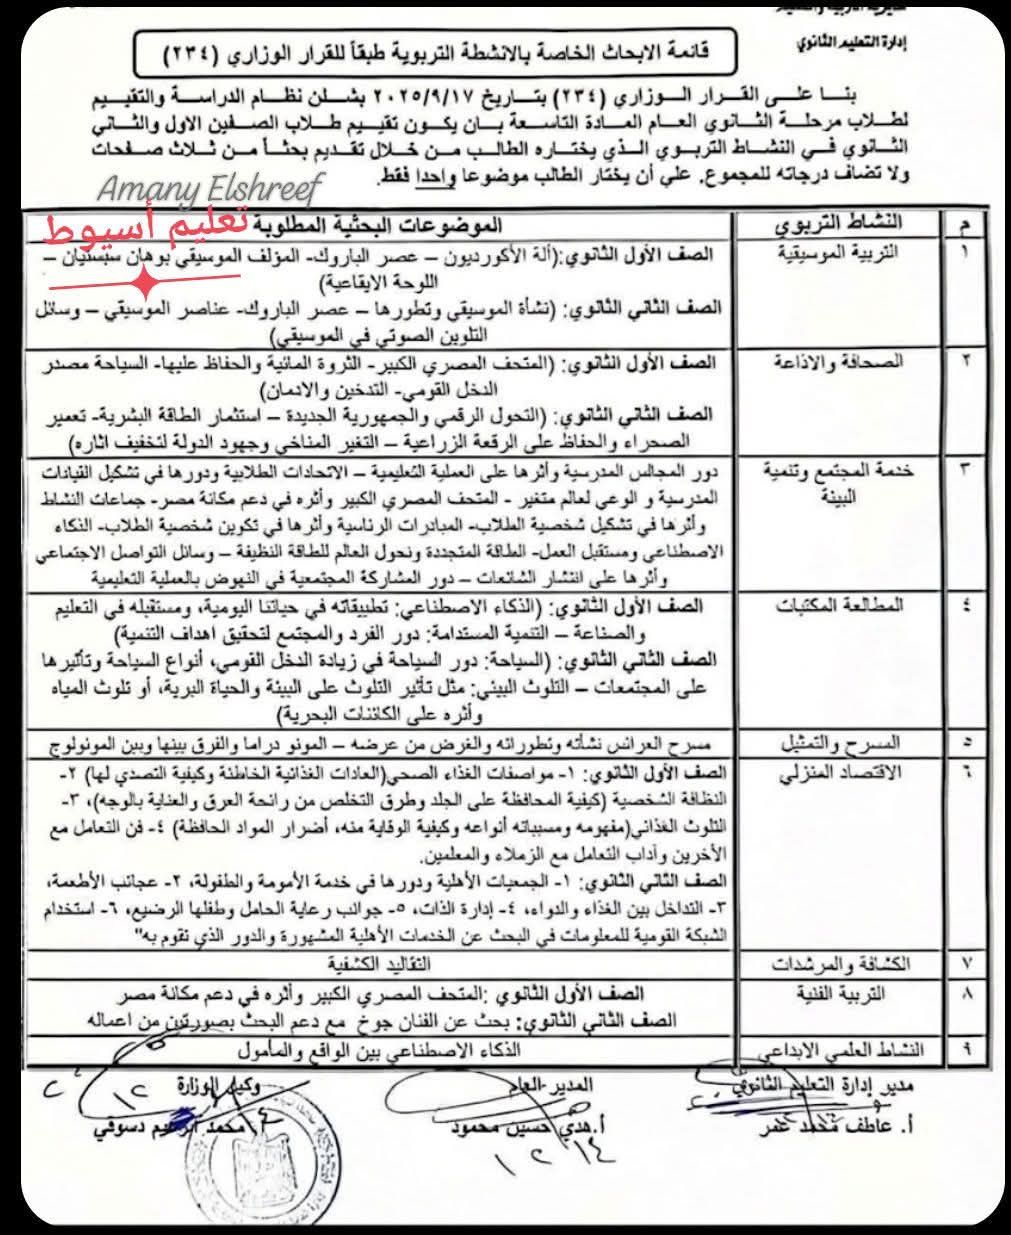 إدارة التعليم الثانوي
قائمة الابحاث الخاصة بالانشطة التربوية طبقاً للقرار الوزاري (٢٣٤)
بنا على القرار الوزاري (٢٣٤) بتاريخ ٢٠٢٥/٩/١٧ بشأن نظام الدراسة والتقييم
لطلاب مرحلة الثانوي العام المادة التاسعة بان يكون تقييم طلاب الصفين الاول والثاني
الثانوي في النشاط التربوي الذي يختاره الطالب من خلال تقديم بحثاً من ثلاث صفحات
ولا تضاف درجاته للمجموع. علي أن يختار الطالب موضوعا واحدا فقط.
Amany Elshreef
تعليم أسيوط
م النشاط التربوي الموضوعات البحثية المطلوبة
١ التربية الموسيقية الصف الأول الثانوي:(ألة الأكورديون – عصر الباروك- المؤلف الموسيقي يوهان سبستيان –
اللوحة الايقاعية)
الصف الثاني الثانوي: (نشأة الموسيقي وتطورها – عصر الباروك- عناصر الموسيقي – وسائل
التلوين الصوتي في الموسيقي)
٢ الصحافة والاذاعة الصف الأول الثانوي: (المتحف المصري الكبير- الثروة المائية والحفاظ عليها- السياحة مصدر
الدخل القومي- التدخين والادمان)
الصف الثاني الثانوي: (التحول الرقمي والجمهورية الجديدة – استثمار الطاقة البشرية- تعمير
الصحراء والحفاظ على الرقعة الزراعية – التغير المناخي وجهود الدولة لتخفيف اثاره)
٣ خدمة المجتمع وتنمية البيئة دور المجالس المدرسية وأثرها على العملية التعليمية – الاتحادات الطلابية ودورها في تشكيل القيادات
المدرسية و الوعى لعالم متغير - المتحف المصري الكبير وأثره في دعم مكانة مصر- جماعات النشاط
وأثرها في تشكيل شخصية الطلاب- المبادرات الرئاسية وأثرها في تكوين شخصية الطلاب- الذكاء
الاصطناعى ومستقبل العمل- الطاقة المتجددة وتحول العالم للطاقة النظيفة – وسائل التواصل الاجتماعي
وأثرها على انتشار الشائعات – دور المشاركة المجتمعية في النهوض بالعملية التعليمية
٤ المطالعة المكتبات الصف الأول الثانوي: (الذكاء الاصطناعي: تطبيقاته في حياتنا اليومية، ومستقبله في التعليم
والصناعة – التنمية المستدامة: دور الفرد والمجتمع لتحقيق اهداف التنمية)
الصف الثاني الثانوي: (السياحة: دور السياحة في زيادة الدخل القومي، أنواع السياحة وتأثيرها
على المجتمعات – التلوث البيئي: مثل تأثير التلوث على البيئة والحياة البرية، أو تلوث المياه
وأثره على الكائنات البحرية)
٥ المسرح والتمثيل مسرح العرائس نشأته وتطوراته والغرض من عرضه – المونو دراما والفرق بينها وبين المونولوج
٦ الاقتصاد المنزلي الصف الأول الثانوي: ١- مواصفات الغذاء الصحي(العادات الغذائية الخاطئة وكيفية التصدي لها) ٢-
النظافة الشخصية (كيفية المحافظة على الجلد وطرق التخلص من رائحة العرق والعناية بالوجه)، ٣-
التلوث الغذائي(مفهومه ومسبباته أنواعه وكيفية الوقاية منه، أضرار المواد الحافظة) ٤- فن التعامل مع
الأخرين وآداب التعامل مع الزملاء والمعلمين.
الصف الثاني الثانوي: ١- الجمعيات الأهلية ودورها في خدمة الأمومة والطفولة، ٢- عجائب الأطعمة،
٣- التداخل بين الغذاء والدواء، ٤- إدارة الذات، ٥- جوانب رعاية الحامل وطفلها الرضيع، ٦- استخدام
الشبكة القومية للمعلومات في البحث عن الخدمات الأهلية المشهورة والدور الذي تقوم به"
٧ الكشافة والمرشدات التقاليد الكشفية
٨ التربية الفنية الصف الأول الثانوي :المتحف المصري الكبير وأثره في دعم مكانة مصر
الصف الثاني الثانوي: بحث عن الفنان جوخ مع دعم البحث بصورتين من اعماله
٩ النشاط العلمي الابداعي الذكاء الاصطناعي بين الواقع والمأمول
مدير إدارة التعليم الثانوي المدير العام وكيل الوزارة
أ. عاطف محمد عمر أ.هدي حسين محمود محمد ابراهيم دسوقي